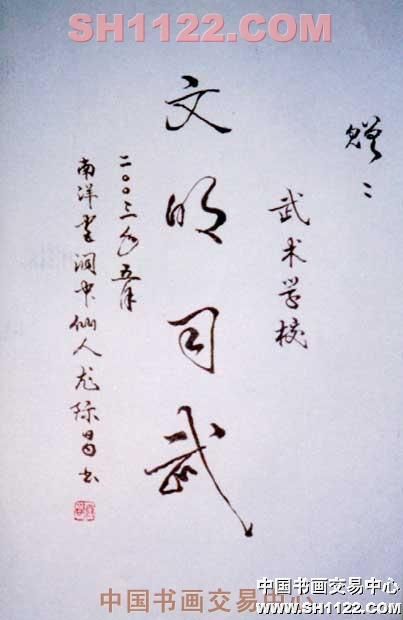 SH1122.COM
赠：
武术学校
文明司武
二〇〇三年五月
南洋 中仙人 昌书
中国书画交易中心
中国书画交易中心
www.SH1122.COM